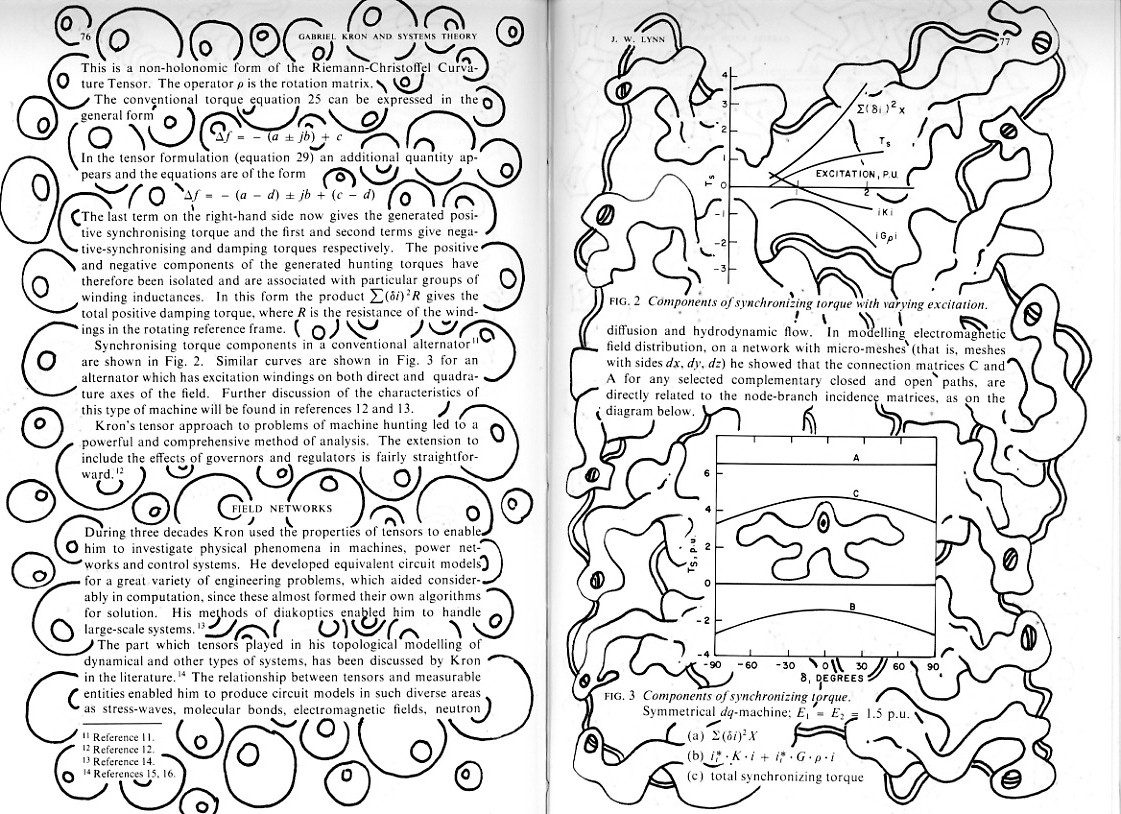 76
GABRIEL KRON AND SYSTEMS THEORY
This is a non-holonomic form of the Riemann-Christoffel Curva-
ture Tensor. The operator ρ is the rotation matrix.
The conventional torque equation 25 can be expressed in the
general form
Δf = − (a ± jb) + c
In the tensor formulation (equation 29) an additional quantity ap-
pears and the equations are of the form
Δf = − (a − d) ± jb + (c − d)
The last term on the right-hand side now gives the generated posi-
tive synchronising torque and the first and second terms give nega-
tive-synchronising and damping torques respectively. The positive
and negative components of the generated hunting torques have
therefore been isolated and are associated with particular groups of
winding inductances. In this form the product ∑(δi)²R gives the
total positive damping torque, where R is the resistance of the wind-
ings in the rotating reference frame.
Synchronising torque components in a conventional alternator¹¹
are shown in Fig. 2. Similar curves are shown in Fig. 3 for an
alternator which has excitation windings on both direct and quadra-
ture axes of the field. Further discussion of the characteristics of
this type of machine will be found in references 12 and 13.
Kron's tensor approach to problems of machine hunting led to a
powerful and comprehensive method of analysis. The extension to
include the effects of governors and regulators is fairly straightfor-
ward.¹²
FIELD NETWORKS
During three decades Kron used the properties of tensors to enable
him to investigate physical phenomena in machines, power net-
works and control systems. He developed equivalent circuit models
for a great variety of engineering problems, which aided consider-
ably in computation, since these almost formed their own algorithms
for solution. His methods of diakoptics enabled him to handle
large-scale systems.¹³
The part which tensors played in his topological modelling of
dynamical and other types of systems, has been discussed by Kron
in the literature.¹⁴ The relationship between tensors and measurable
entities enabled him to produce circuit models in such diverse areas
as stress-waves, molecular bonds, electromagnetic fields, neutron
¹¹ Reference 11.
¹² Reference 12.
¹³ Reference 14.
¹⁴ References 15, 16.
J. W. LYNN
77
4
3
Σ(δi)²x
2
Ts
1
EXCITATION, P.U.
Ts
0
2
iKi
-1
iGρi
-2
-3
FIG. 2 Components of synchronizing torque with varying excitation.
diffusion and hydrodynamic flow. In modelling electromagnetic
field distribution, on a network with micro-meshes (that is, meshes
with sides dx, dy, dz) he showed that the connection matrices C and
A for any selected complementary closed and open paths, are
directly related to the node-branch incidence matrices, as on the
diagram below.
A
6
C
4
2
Ts, p.u.
0
B
-2
-4
-90 -60 -30 0 30 60 90
δ, DEGREES
FIG. 3 Components of synchronizing torque.
Symmetrical dq-machine; E₁ = E₂ = 1.5 p.u.
(a) Σ(δi)²X
(b) iₜ* · K · i + iₜ* · G · ρ · i
(c) total synchronizing torque